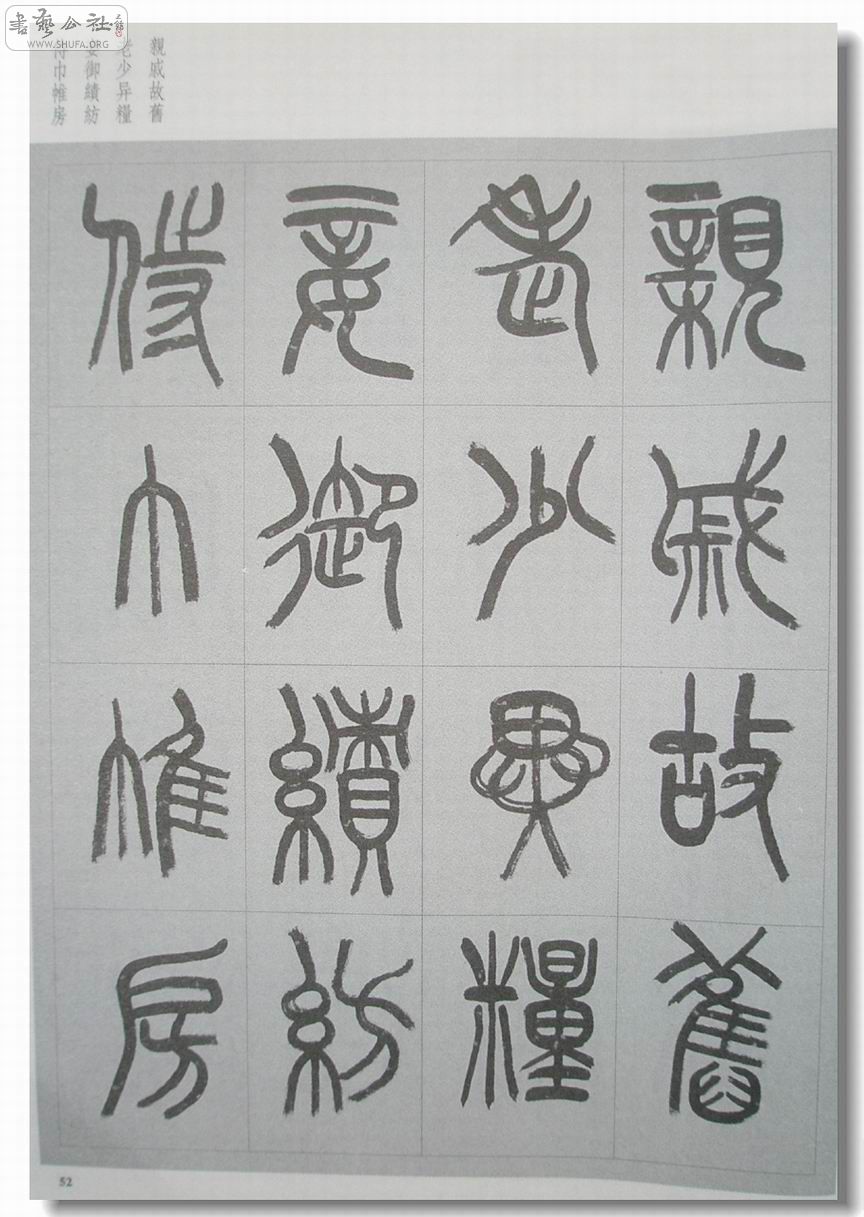 書藝公社
WWW.SHUFA.ORG
親戚故舊
老少异糧
妾御績紡
侍巾帷房
親戚故舊
老少異糧
妾御績紡
侍巾帷房
52